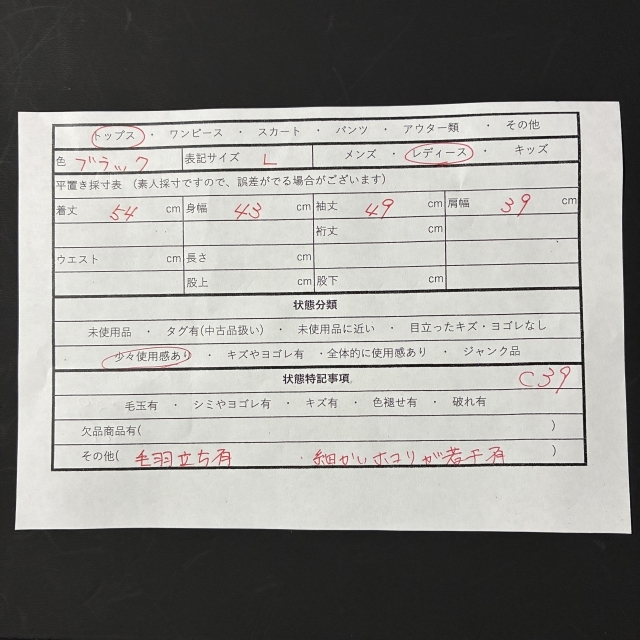 トップス ・ ワンピース ・ スカート ・ パンツ ・ アウター類 ・ その他
色 ブラック 表記サイズ L メンズ ・ レディース ・ キッズ
平置き採寸表 (素人採寸ですので、誤差がでる場合がございます)
着丈 54 cm 身幅 43 cm 袖丈 49 cm 肩幅 39 cm
裄丈 cm
ウエスト cm 長さ cm
股上 cm 股下 cm
状態分類
未使用品 ・ タグ有(中古品扱い) ・ 未使用品に近い ・ 目立ったキズ・ヨゴレなし
少々使用感あり ・ キズやヨゴレ有 ・全体的に使用感あり ・ ジャンク品
状態特記事項 C39
毛玉有 ・ シミやヨゴレ有 ・ キズ有 ・ 色褪せ有 ・ 破れ有
欠品商品有( )
その他( 毛羽立ち有 ・ 細かいホコリが若干有 )